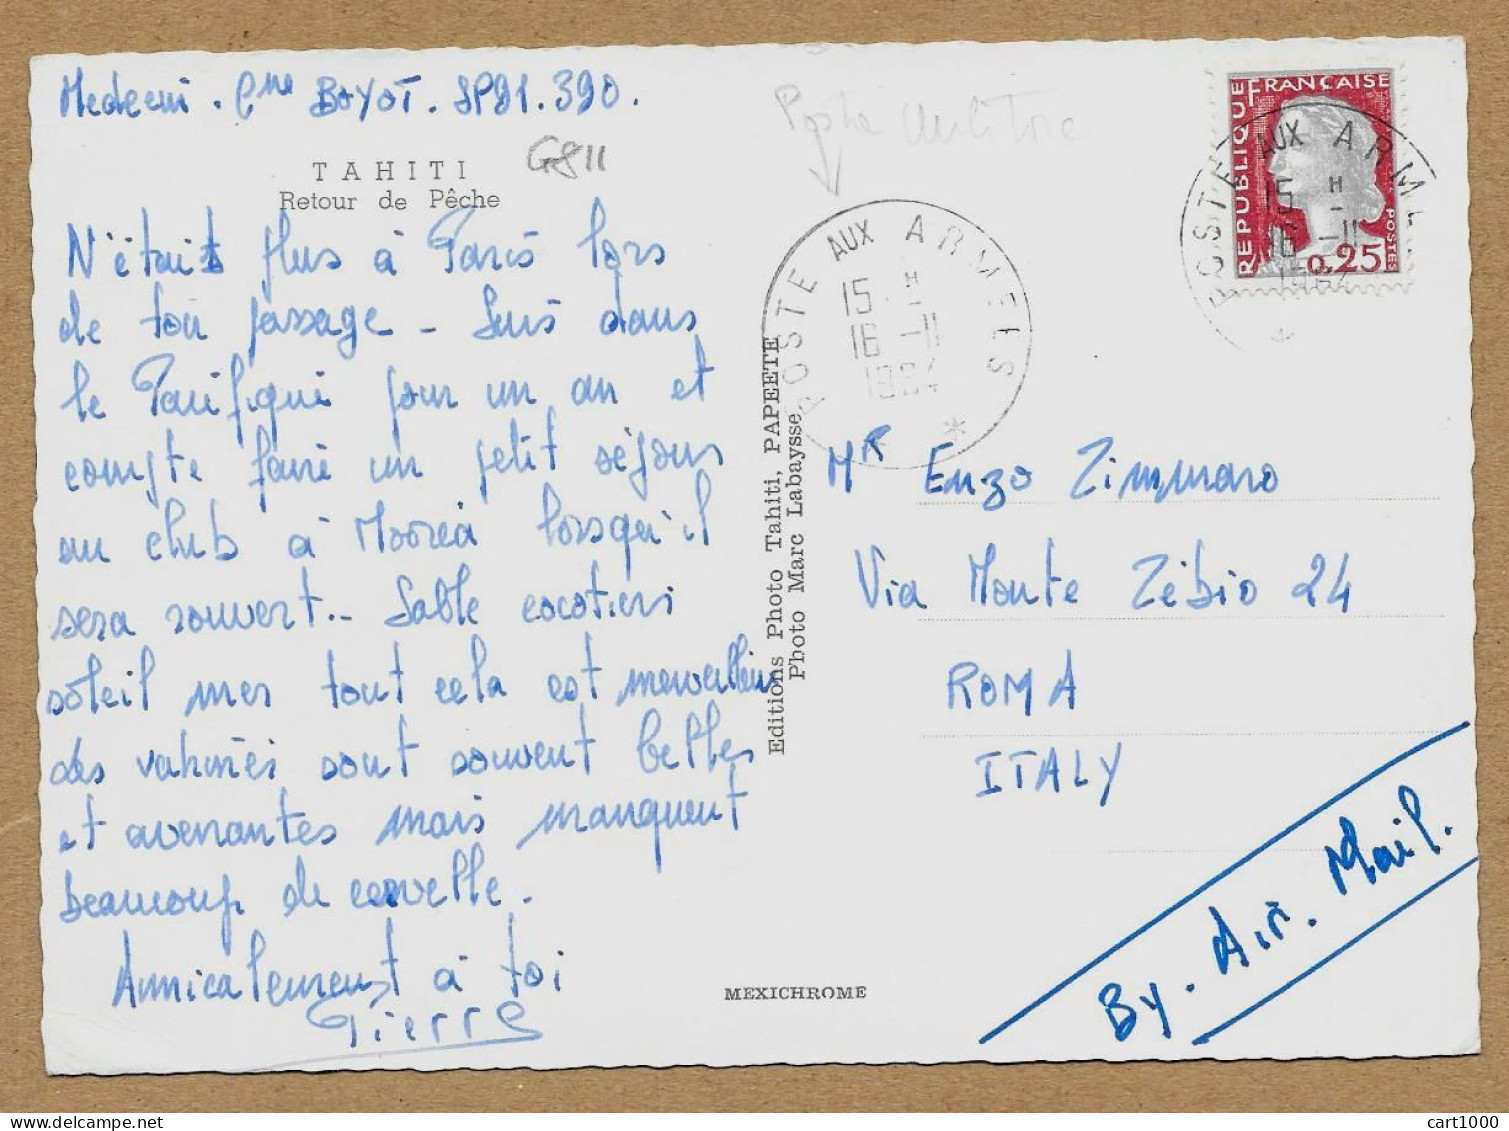 Medecin. Cne BOYOT. SP91.390.
G811
TAHITI
Retour de Pêche
N'étais plus à Paris lors
de ton passage - Suis dans
le Pacifique pour un an et
compte faire un petit séjour
au club à Moorea lorsqu'il
sera rouvert.. Sable cocotiers
soleil mer tout cela est merveilleux
des vahinés sont souvent belles
et avenantes mais manquent
beaucoup de cervelle.
Amicalement à toi
Pierre
Editions Photo Tahiti, PAPEETE
Photo Marc Labaysse
MEXICHROME
POSTE AUX ARMEES
15 H
16 -11
1964
RÉPUBLIQUE FRANÇAISE
POSTES
0,25
POSTE AUX ARMEES
15 H
16 -11
1964
Mr Enzo Zimmaro
Via Monte Zebio 24
ROMA
ITALY
By. Air. Mail.
cart1000